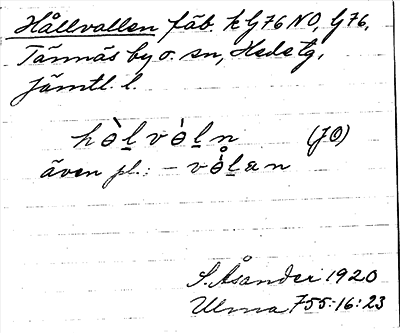 Hållvallen fäb. k G76 NO, G76,
Tännäs by o. sn, Hede tg,
Jämtl. l.
hɵ̀ḻvɵ̀ḻn (JÖ)
även pl.: - vɵ̊̀ḻan
S. Åsander 1920
Ulma 755:16:23